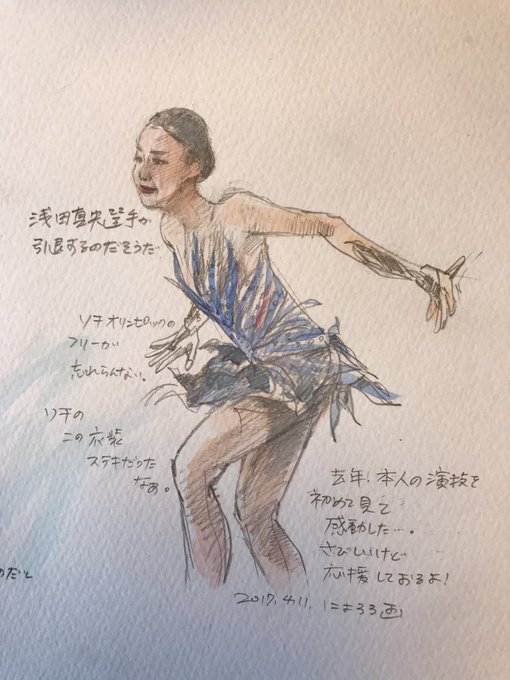 浅田真央選手が
引退するのだそうだ
ソチオリンピックの
フリーが
忘れらんない。
ソチの
この衣装
ステキだった
なあ。
去年、本人の演技を
初めて見て
感動した…。
さびしいけど
応援しておるよ!
2017.4.11. にまろろ画
のだと